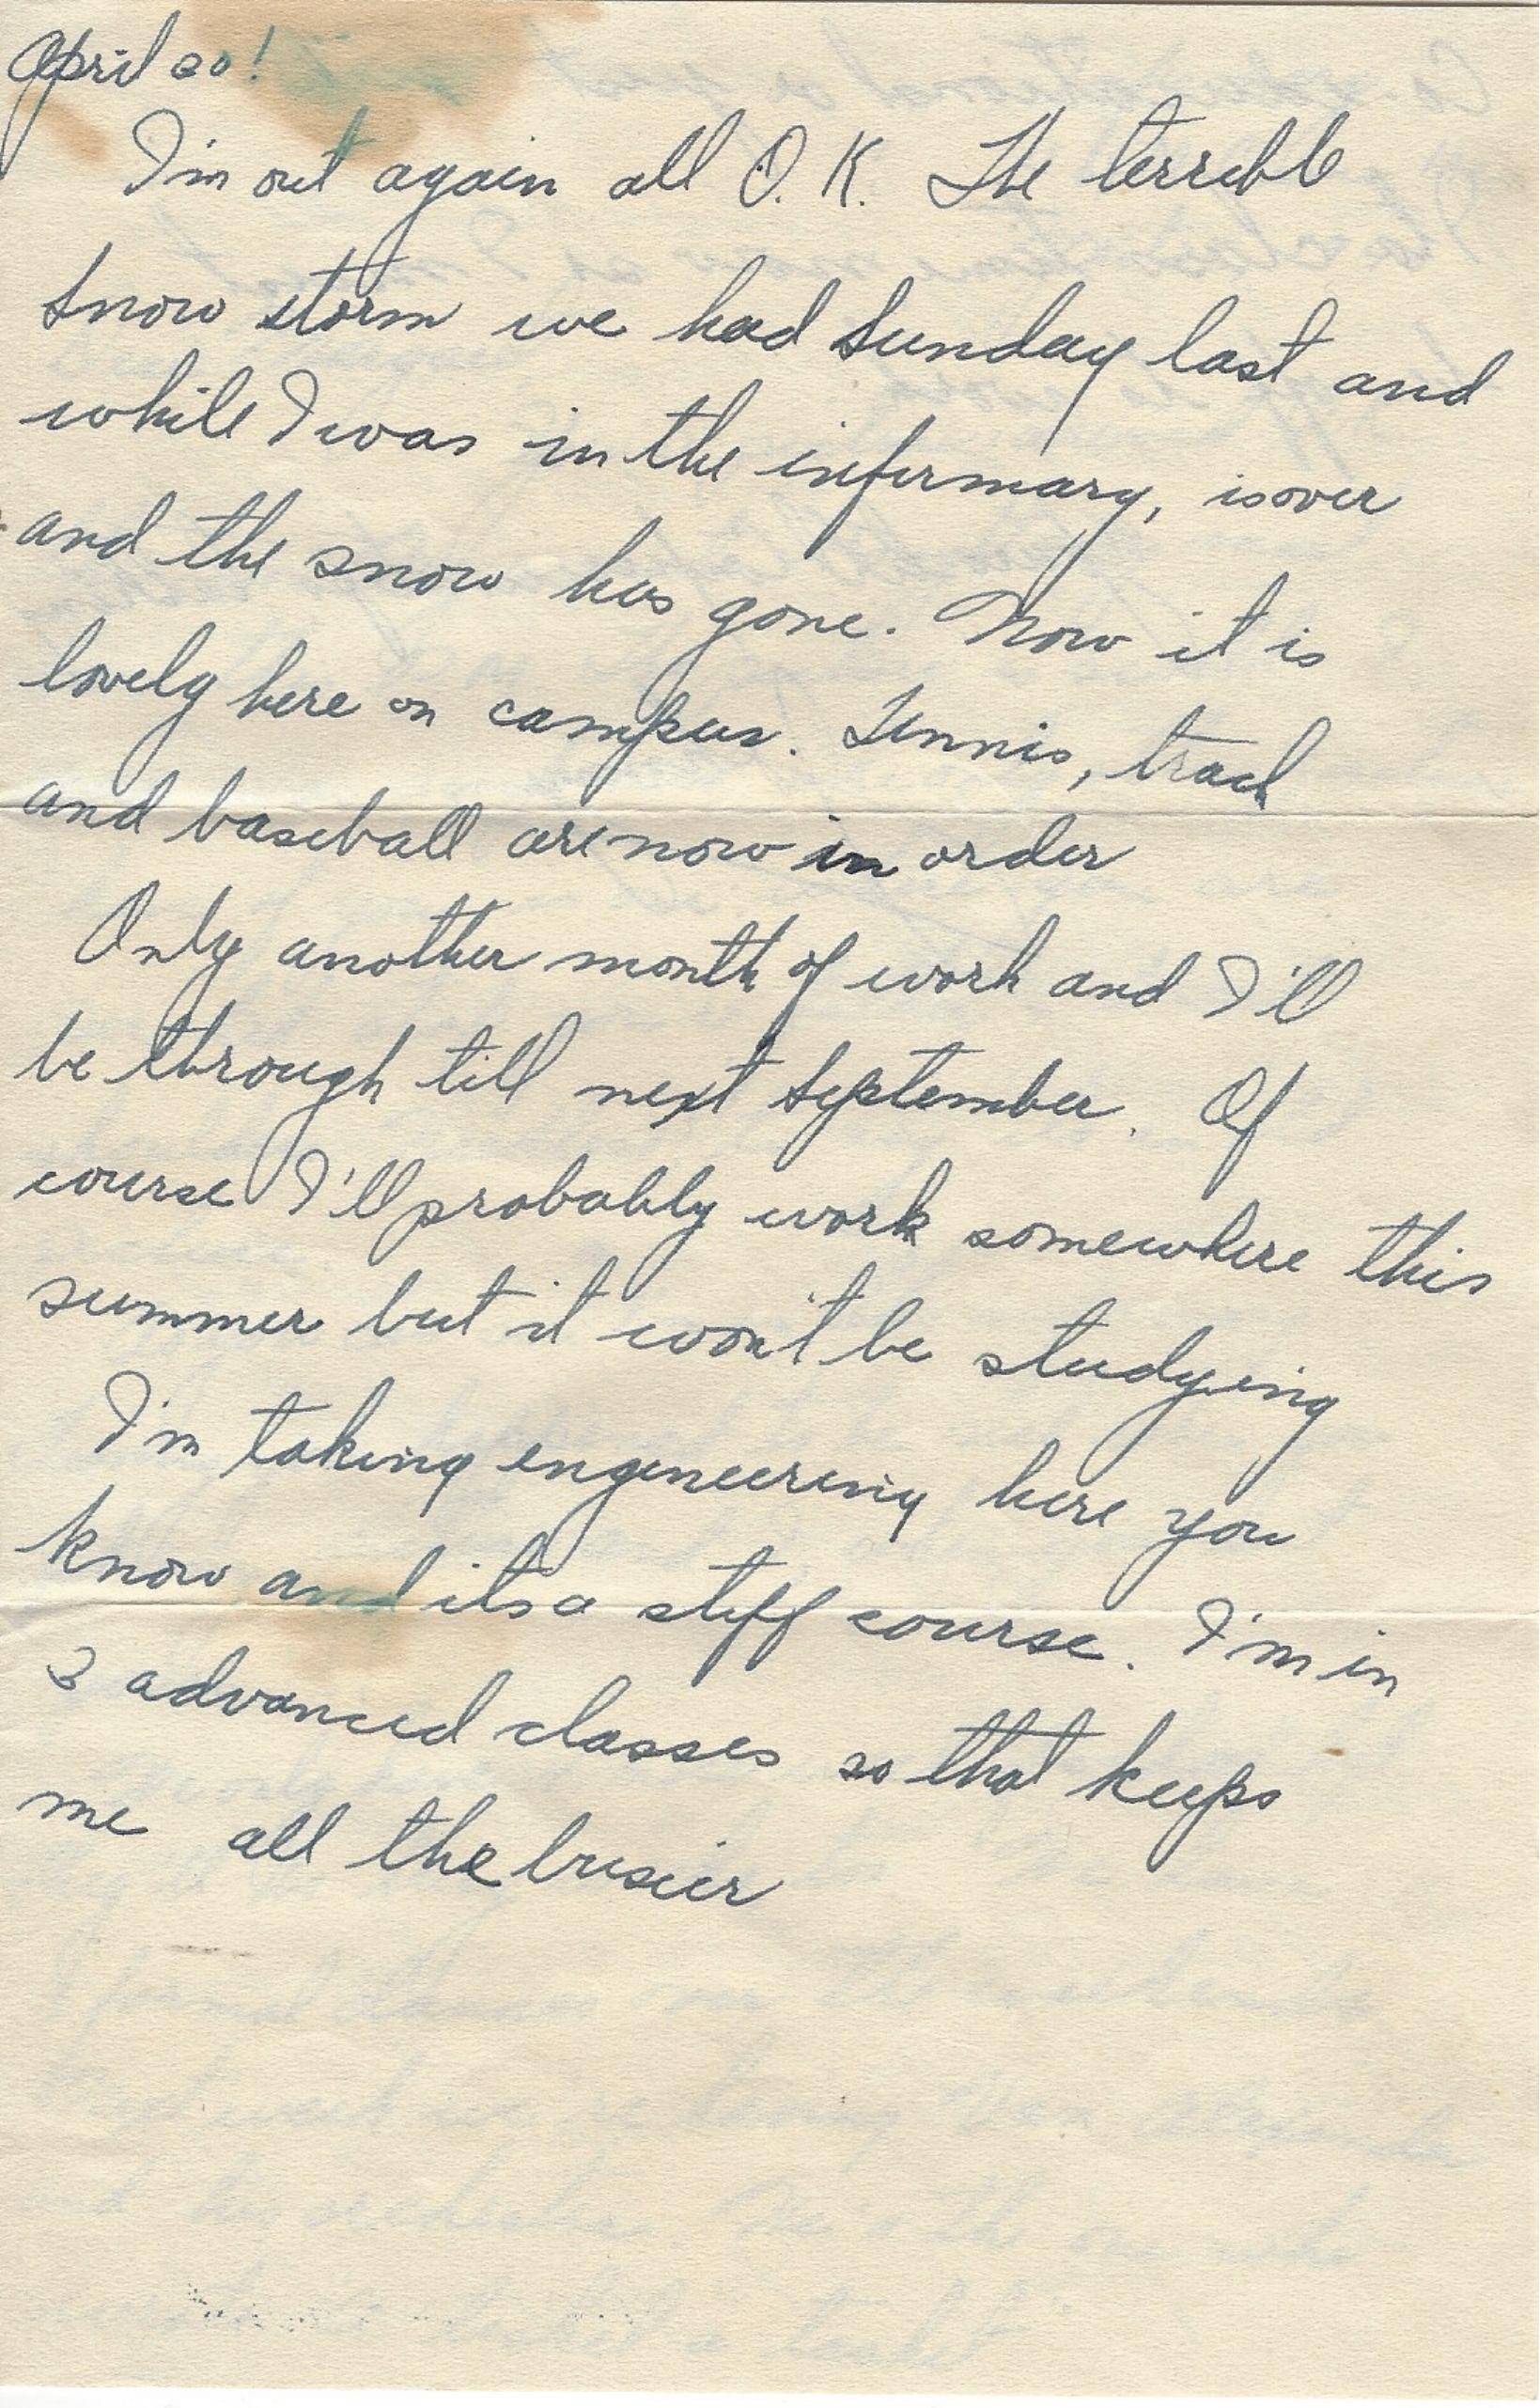 April 20!
I'm out again all O.K. The terrible
snow storm we had Sunday last and
while I was in the infirmary, is over
and the snow has gone. Now it is
lovely here on campus. Tennis, track
and baseball are now in order
Only another month of work and I'll
be through till next September. Of
course I'll probably work somewhere this
summer but it won't be studying
I'm taking engineering here you
know and its a stiff course. I'm in
3 advanced classes so that keeps
me all the busier